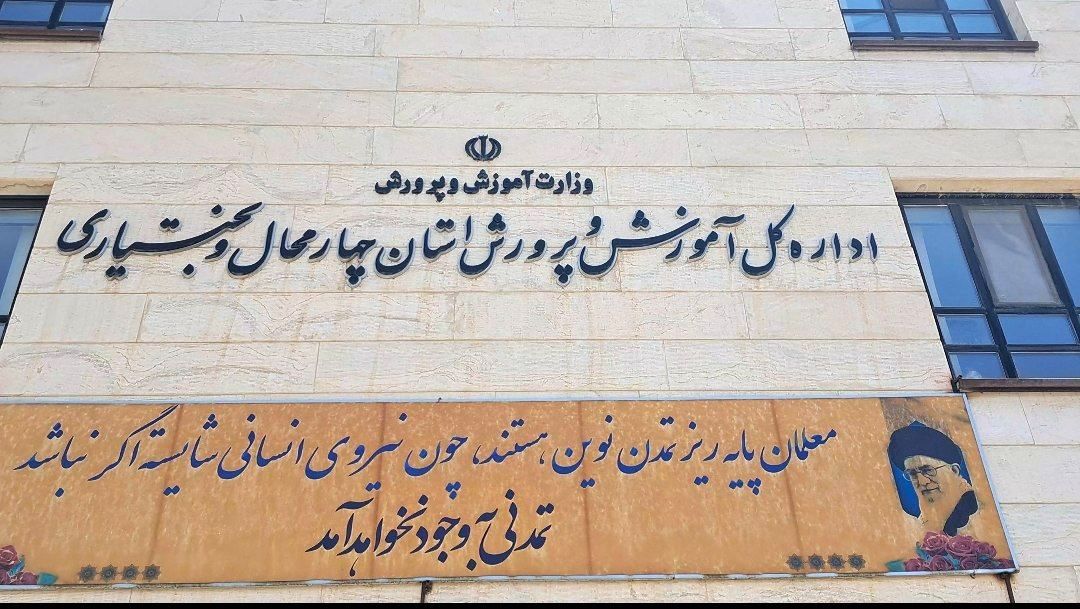 وزارت آموزش و پرورش
اداره کل آموزش و پرورش استان چهارمحال و بختیاری
معلمان پایه ریز تمدن نوین هستند، چون نیروی انسانی شایسته اگر نباشد
تمدنی به وجود نخواهد آمد